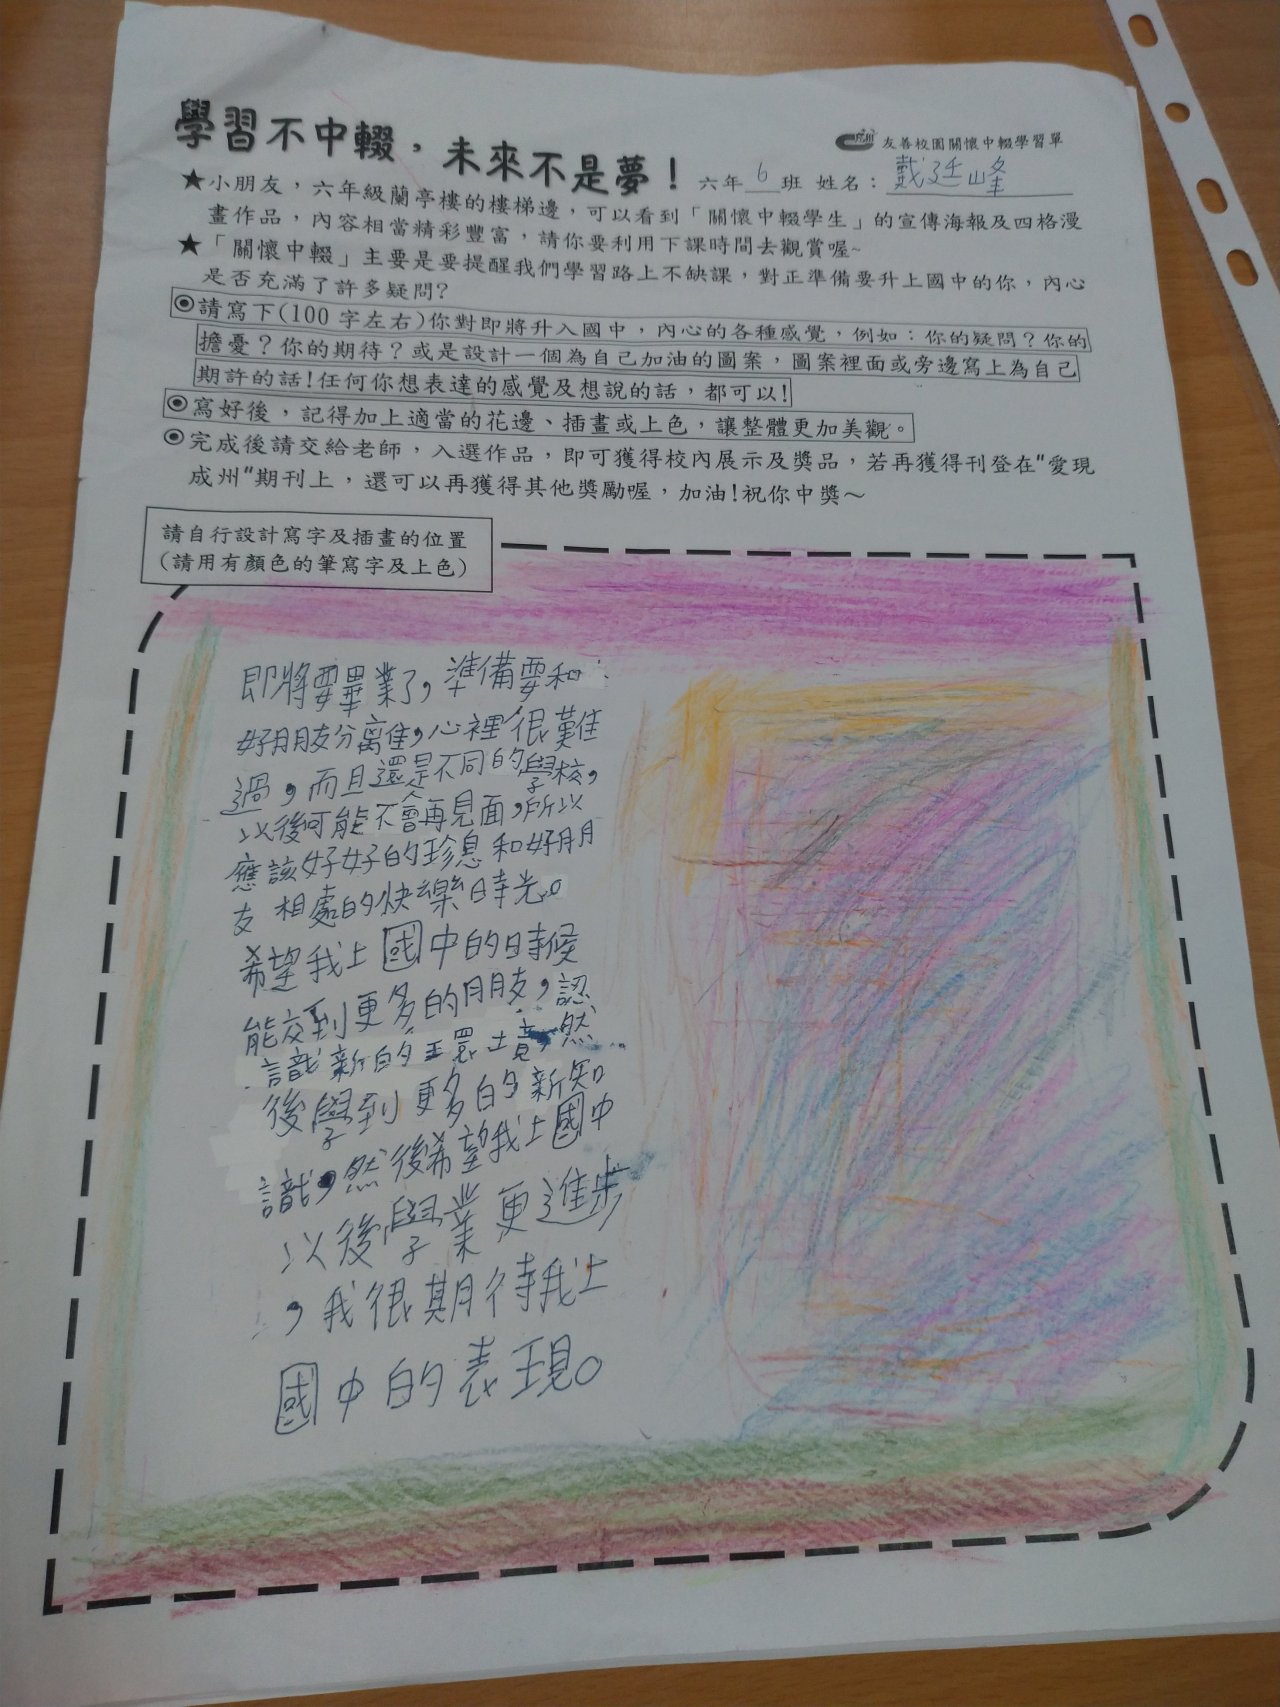 學習不中輟，未來不是夢！
友善校園關懷中輟學習單
六年6班 姓名：戴廷峰
★小朋友，六年級蘭亭樓的樓梯邊，可以看到「關懷中輟學生」的宣傳海報及四格漫
畫作品，內容相當精彩豐富，請你要利用下課時間去觀賞喔~
★「關懷中輟」主要是要提醒我們學習路上不缺課，對正準備要升上國中的你，內心
是否充滿了許多疑問?
◉請寫下(100字左右)你對即將升入國中，內心的各種感覺，例如：你的疑問？你的
擔憂？你的期待？或是設計一個為自己加油的圖案，圖案裡面或旁邊寫上為自己
期許的話!任何你想表達的感覺及想說的話，都可以!
◉寫好後，記得加上適當的花邊、插畫或上色，讓整體更加美觀。
◉完成後請交給老師，入選作品，即可獲得校內展示及獎品，若再獲得刊登在"愛現
成州"期刊上，還可以再獲得其他獎勵喔，加油!祝你中獎～
請自行設計寫字及插畫的位置
(請用有顏色的筆寫字及上色)
即將要畢業了，準備要和
好朋友分離，心裡很難
過，而且還是不同的學校，
以後可能不會再見面，所以
應該好好的珍息和好朋
友相處的快樂時光。
希望我上國中的時候
能交到更多的朋友，認
識新的環境，然
後學到更多的新知
識，然後希望我上國中
以後學業更進步
，我很期待我上
國中的表現。